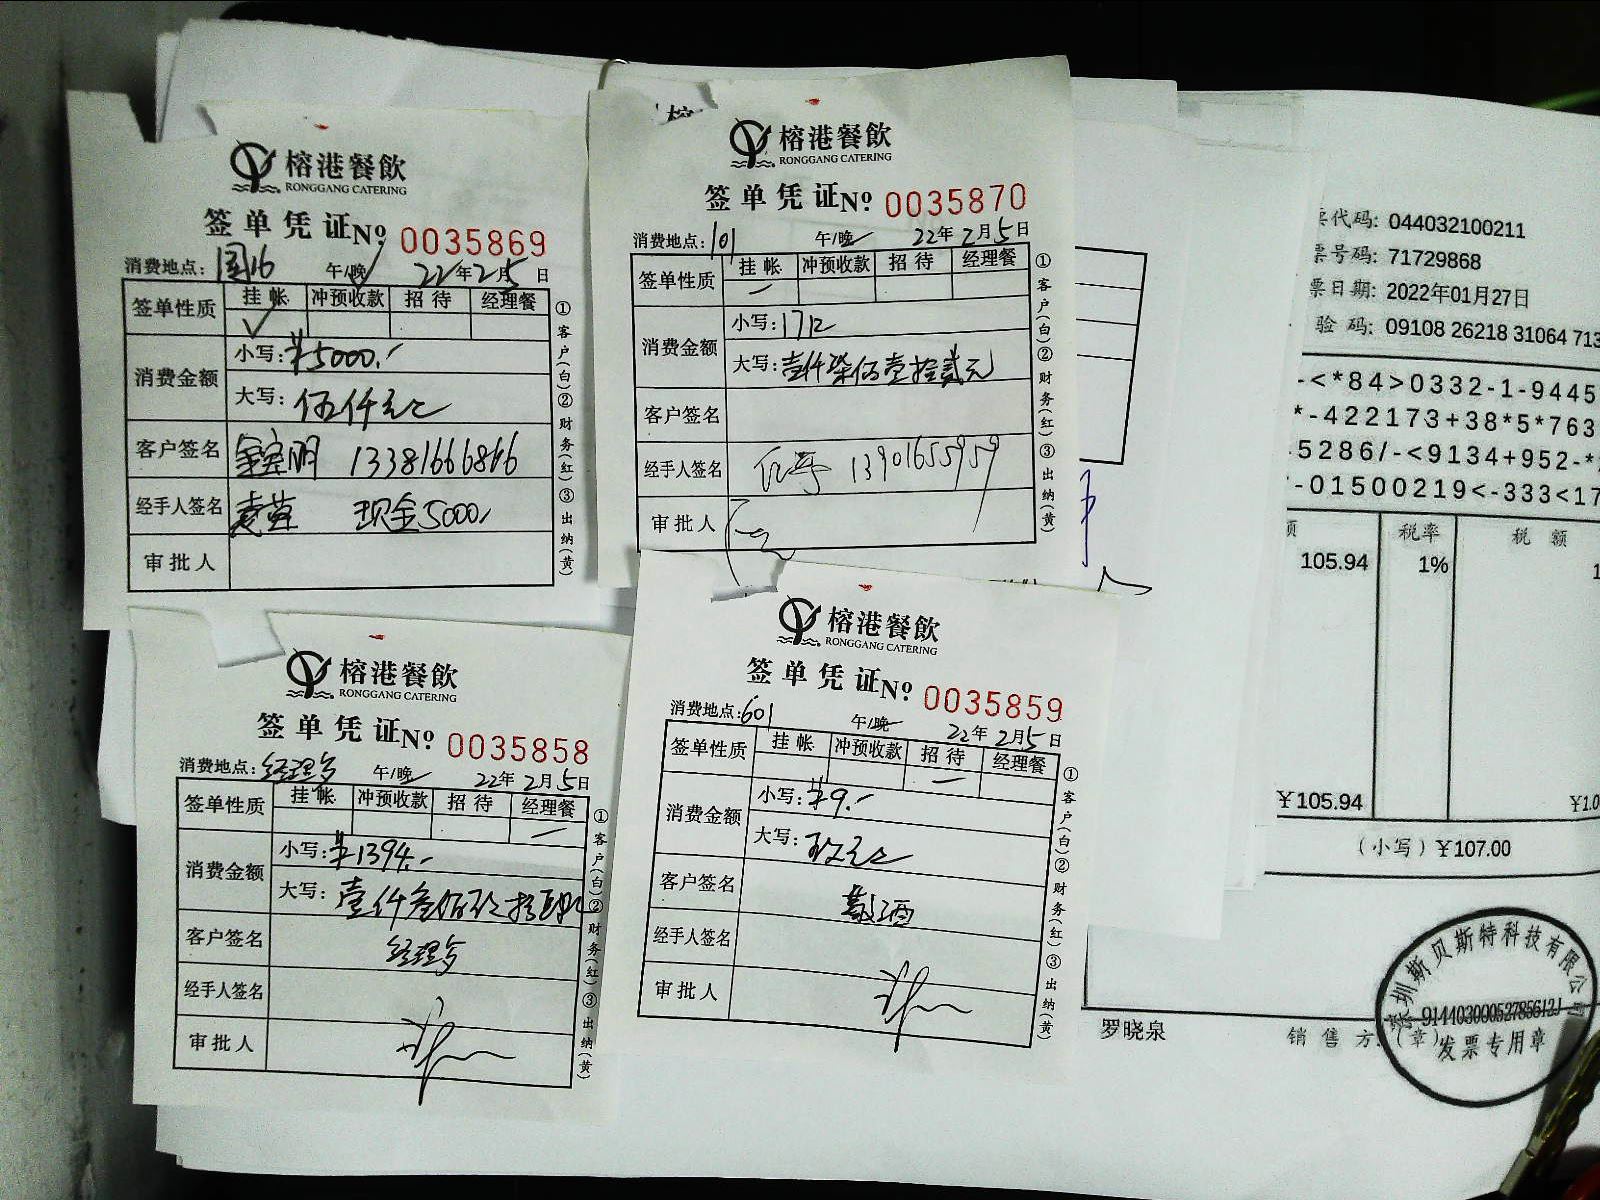 榕港餐飲
RONGGANG CATERING
签单凭证№ 0035869
消费地点: 国16 午/晚 22年2月5日
签单性质 挂帐 冲预收款 招待 经理餐
消费金额 小写: ¥5000.-
大写: 伍仟元
客户签名 13381666866
经手人签名 现金5000.
审批人
①客户(白)②财务(红)③出纳(黄)
榕港餐飲
RONGGANG CATERING
签单凭证№ 0035870
消费地点: 101 午/晚 22年2月5日
签单性质 挂帐 冲预收款 招待 经理餐
消费金额 小写: 1712
大写: 壹仟柒佰壹拾贰元
客户签名
经手人签名 13901655959
审批人
①客户(白)②财务(红)③出纳(黄)
榕港餐飲
RONGGANG CATERING
签单凭证№ 0035858
消费地点: 经理 午/晚 22年2月5日
签单性质 挂帐 冲预收款 招待 经理餐
消费金额 小写: ¥1394.-
大写: 壹仟叁佰玖拾肆
客户签名 经理
经手人签名
审批人
①客户(白)②财务(红)③出纳(黄)
榕港餐飲
RONGGANG CATERING
签单凭证№ 0035859
消费地点: 601 午/晚 22年2月5日
签单性质 挂帐 冲预收款 招待 经理餐
消费金额 小写: ¥9.-
大写: 玖元
客户签名 敬酒
经手人签名
审批人
①客户(白)②财务(红)③出纳(黄)
榕
票代码: 044032100211
票号码: 71729868
票日期: 2022年01月27日
验码: 09108 26218 31064 713
-<*84>0332-1-9445
*-422173+38*5*763
5286/-<9134+952-*
-01500219<-333<17
额 税率 税额
105.94 1% 1
¥105.94 ¥1.0
(小写)¥107.00
罗晓泉
销售方:(章)
深圳斯贝斯特科技有限公司
91440300052785612J
发票专用章